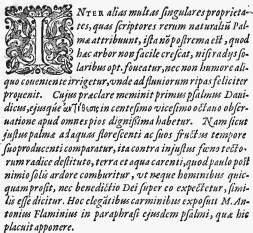 INTER alias multas singulares proprieta-
tes, quas scriptores rerum naturaliũ Pal-
mæ attribuunt, ista nõ postrema est, quod
hæc arbor non facile crescat, nisi radijs so-
laribus opt. foueatur, nec non humore ali-
quo conueniente irrigetur, unde ad fluuiorum ripas feliciter
prouenit. Cujus præclare meminit primus Psalmus Daui-
dicus, ejusque in centesimo vicesimo octauo obser-
uatione apud omnes pios dignissima habetur. Nam sicut
justus palmæ ad aquas florescenti ac suos fructus tempore
suo producenti comparatur, ita contra injustus fæno tecto-
rum radice destituto, terra et aqua carenti, quod paulo post
nimio solis ardore comburitur, ut neque hominibus quic-
quam prosit, nec benedictio Dei super eo expectetur, simi-
lis esse dicitur. Hoc elegãtibus carminibus exposuit M. An-
tonius Flaminius in paraphrasi ejusdem psalmi, quæ hic
placuit apponere.